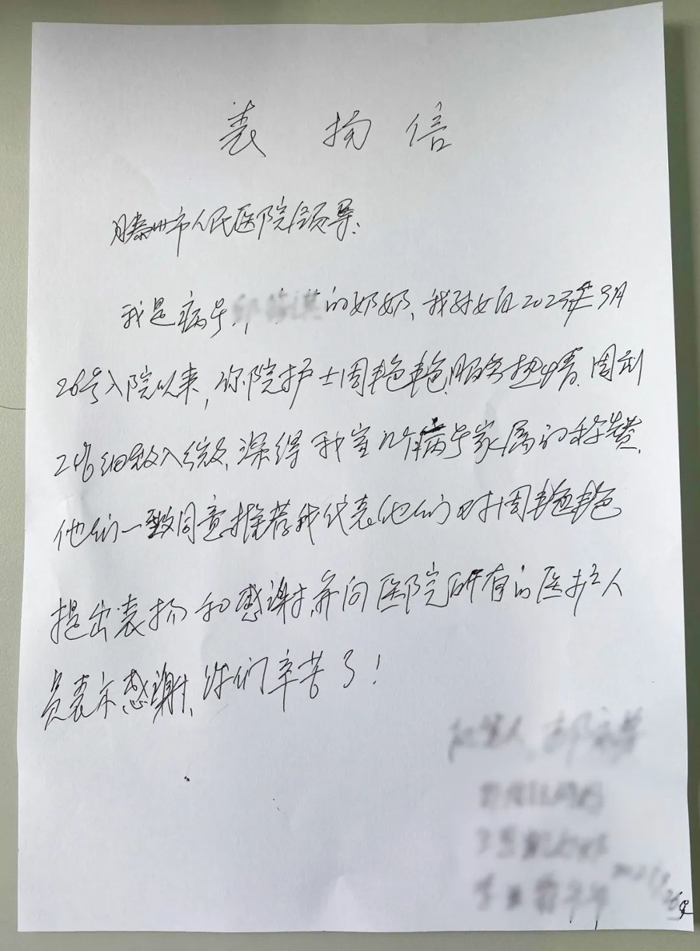 表扬信
滕州市人民医院领导:
我是病号,的奶奶,我孙女自2023年9月
26号入院以来,你院护士周艳艳,服务热情,周到
细致入微,深得我室几个病号家属的称赞,
他们一致同意推荐我代表他们对周艳艳
提出表扬和感谢,并向医院所有的医护人
员表示感谢,你们辛苦了!